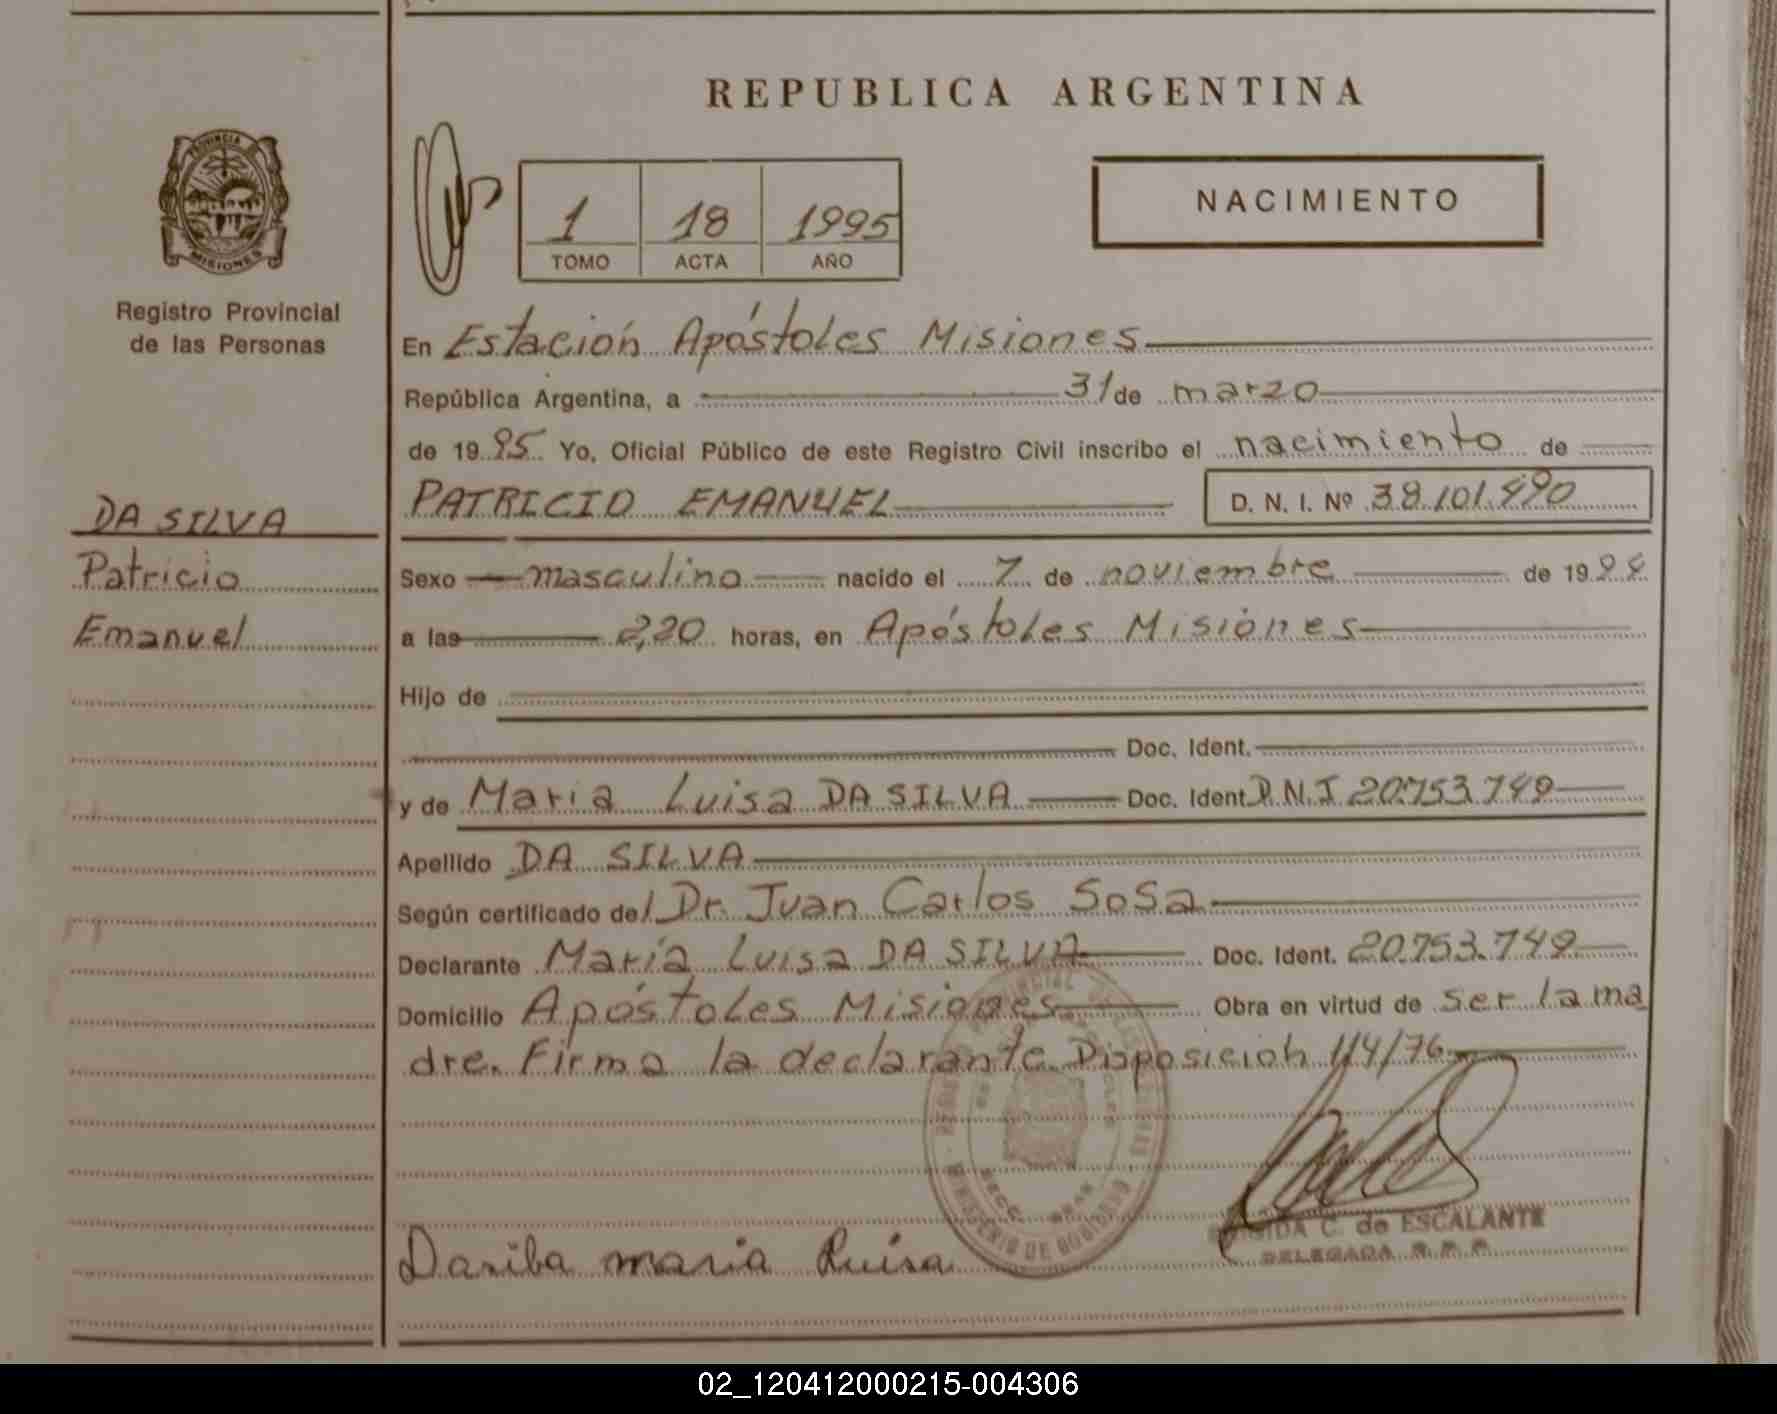 REPUBLICA ARGENTINA
PROVINCIA DE
MISIONES
Registro Provincial
de las Personas
1 18 1995
TOMO ACTA AÑO
NACIMIENTO
En Estación Apóstoles Misiones
República Argentina, a 31 de marzo
de 1995 Yo, Oficial Público de este Registro Civil inscribo el nacimiento de
PATRICIO EMANUEL D. N. I. Nº 38.101.490
DA SILVA
Patricio
Emanuel
Sexo masculino nacido el 7 de noviembre de 1994
a las 2,20 horas, en Apóstoles Misiones
Hijo de
Doc. Ident.
y de María Luisa DA SILVA Doc. Ident D.N.I 20.753.749
Apellido DA SILVA
Según certificado del Dr. Juan Carlos Sosa
Declarante María Luisa DA SILVA Doc. Ident. 20.753.749
Domicilio Apóstoles Misiones Obra en virtud de ser la ma
dre. Firma la declarante Disposición 114/76
MINISTERIO DE GOBIERNO
C. de ESCALANTE
DELEGADA R. P. P.
Dasilba maria Luisa
02_120412000215-004306